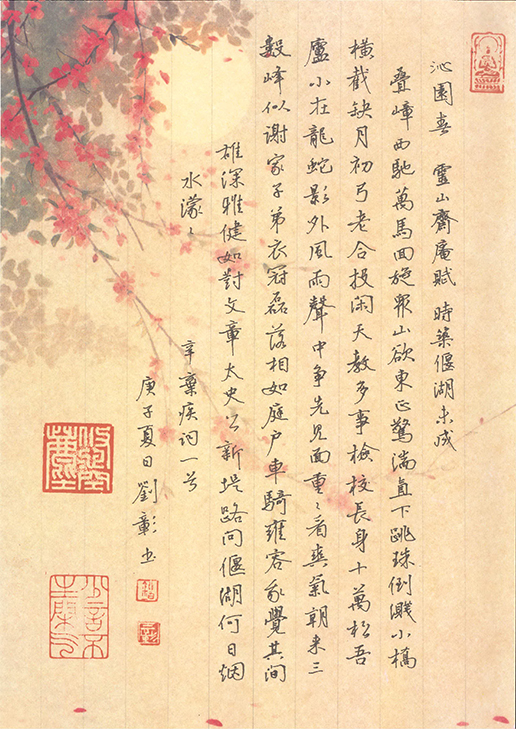 沁園春 靈山齋庵賦 時築偃湖未成
叠嶂西馳萬馬回旋眾山欲東正驚湍直下跳珠倒濺小橋
橫截缺月初弓老合投閑天教多事檢校長身十萬松吾
廬小在龍蛇影外風雨聲中爭先見面重〻看爽氣朝來三
數峰似謝家子弟衣冠磊落相如庭户車騎雍容我覺其間
雄深雅健如對文章太史公新堤路問偃湖何日烟
水濛〻
辛棄疾詞一首
庚子夏日劉彰书